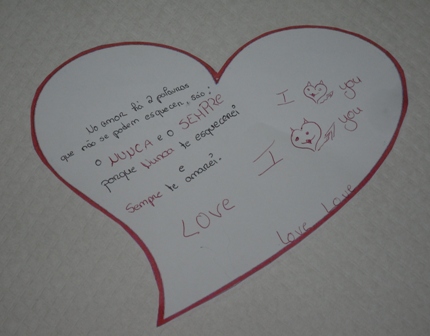 No amor há 2 palavras
que não se podem esquecer, são:
o NUNCA e o SEMPRE
porque Nunca te esquecerei
e
Sempre te amarei!
LOVE
I you
I you
Love Love